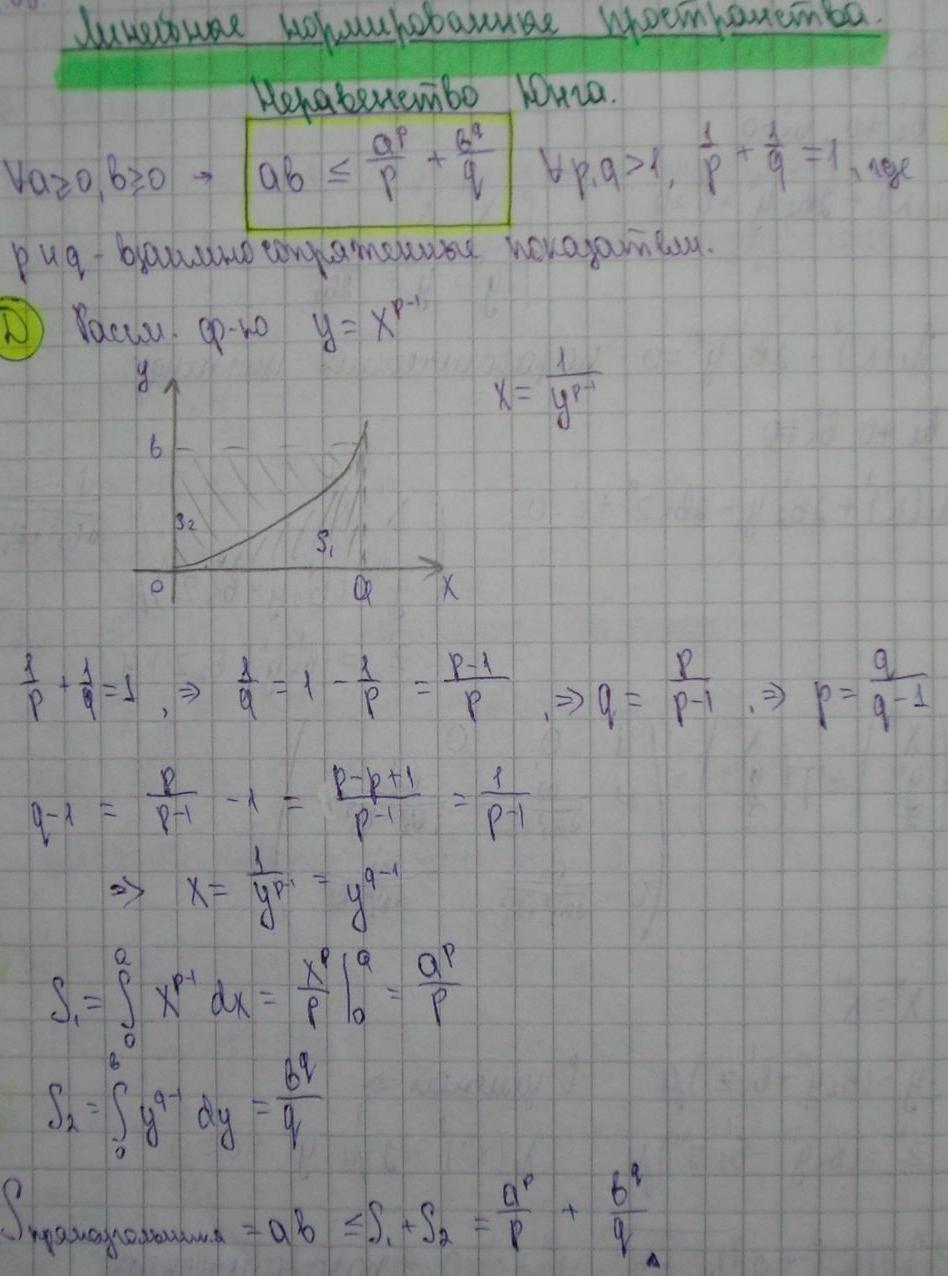 Линейные нормированные пространства.
Неравенство Юнга.
∀a≥0, b≥0 → ab ≤ a^p/p + b^q/q ∀p,q>1, 1/p + 1/q = 1, где
p и q - взаимно сопряженные показатели.
D Рассм. ф-ю y = x^(p-1)
x = 1/y^(p-1)
y
b
S₂
S₁
0 a x
1/p + 1/q = 1, ⇒ 1/q = 1 - 1/p = (p-1)/p, ⇒ q = p/(p-1), ⇒ p = q/(q-1)
q-1 = p/(p-1) - 1 = (p-p+1)/(p-1) = 1/(p-1)
⇒ x = 1/y^(p-1) = y^(q-1)
S₁ = ∫₀^a x^(p-1) dx = x^p/p |₀^a = a^p/p
S₂ = ∫₀^b y^(q-1) dy = b^q/q
S прямоугольника = ab ≤ S₁ + S₂ = a^p/p + b^q/q ▲